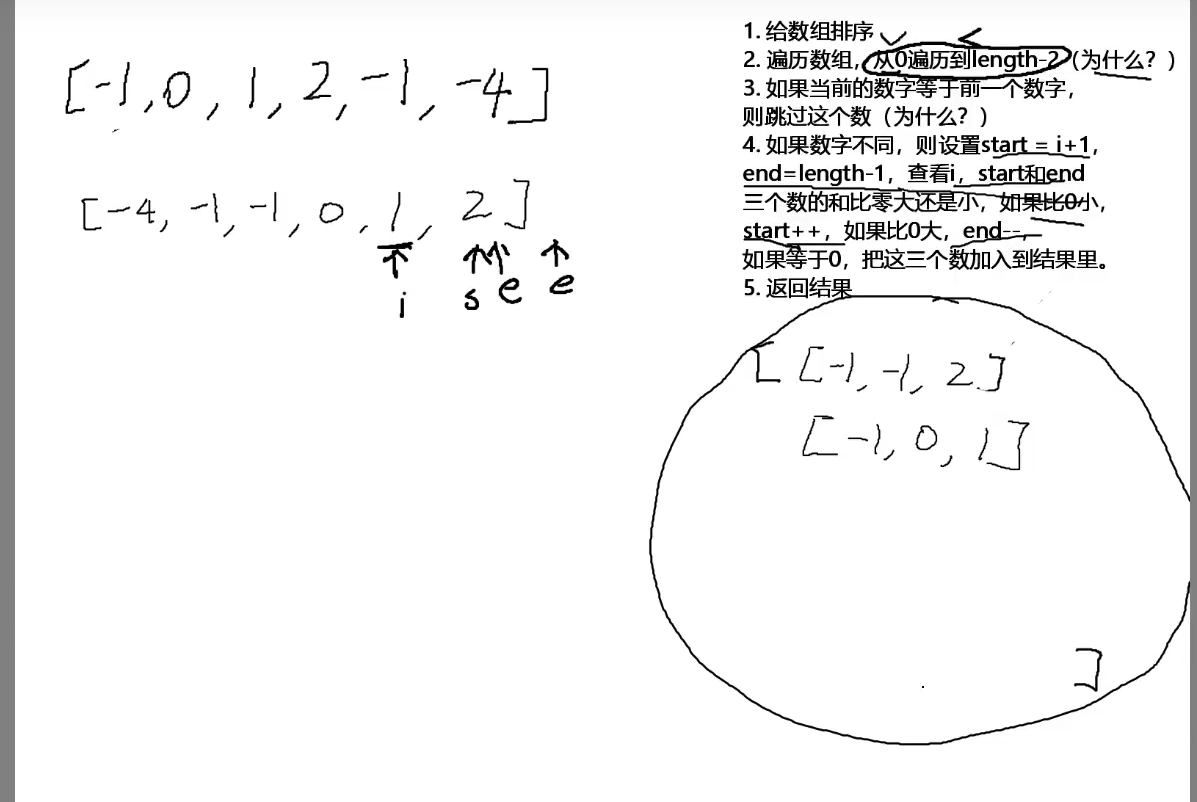 [-1, 0, 1, 2, -1, -4]
[-4, -1, -1, 0, 1, 2]
i s e e
1. 给数组排序
2. 遍历数组，从0遍历到length-2（为什么？）
3. 如果当前的数字等于前一个数字，
则跳过这个数（为什么？）
4. 如果数字不同，则设置start = i+1，
end=length-1，查看i，start和end
三个数的和比零大还是小，如果比0小，
start++，如果比0大，end--，
如果等于0，把这三个数加入到结果里。
5. 返回结果
[ [-1, -1, 2]
[-1, 0, 1]
]